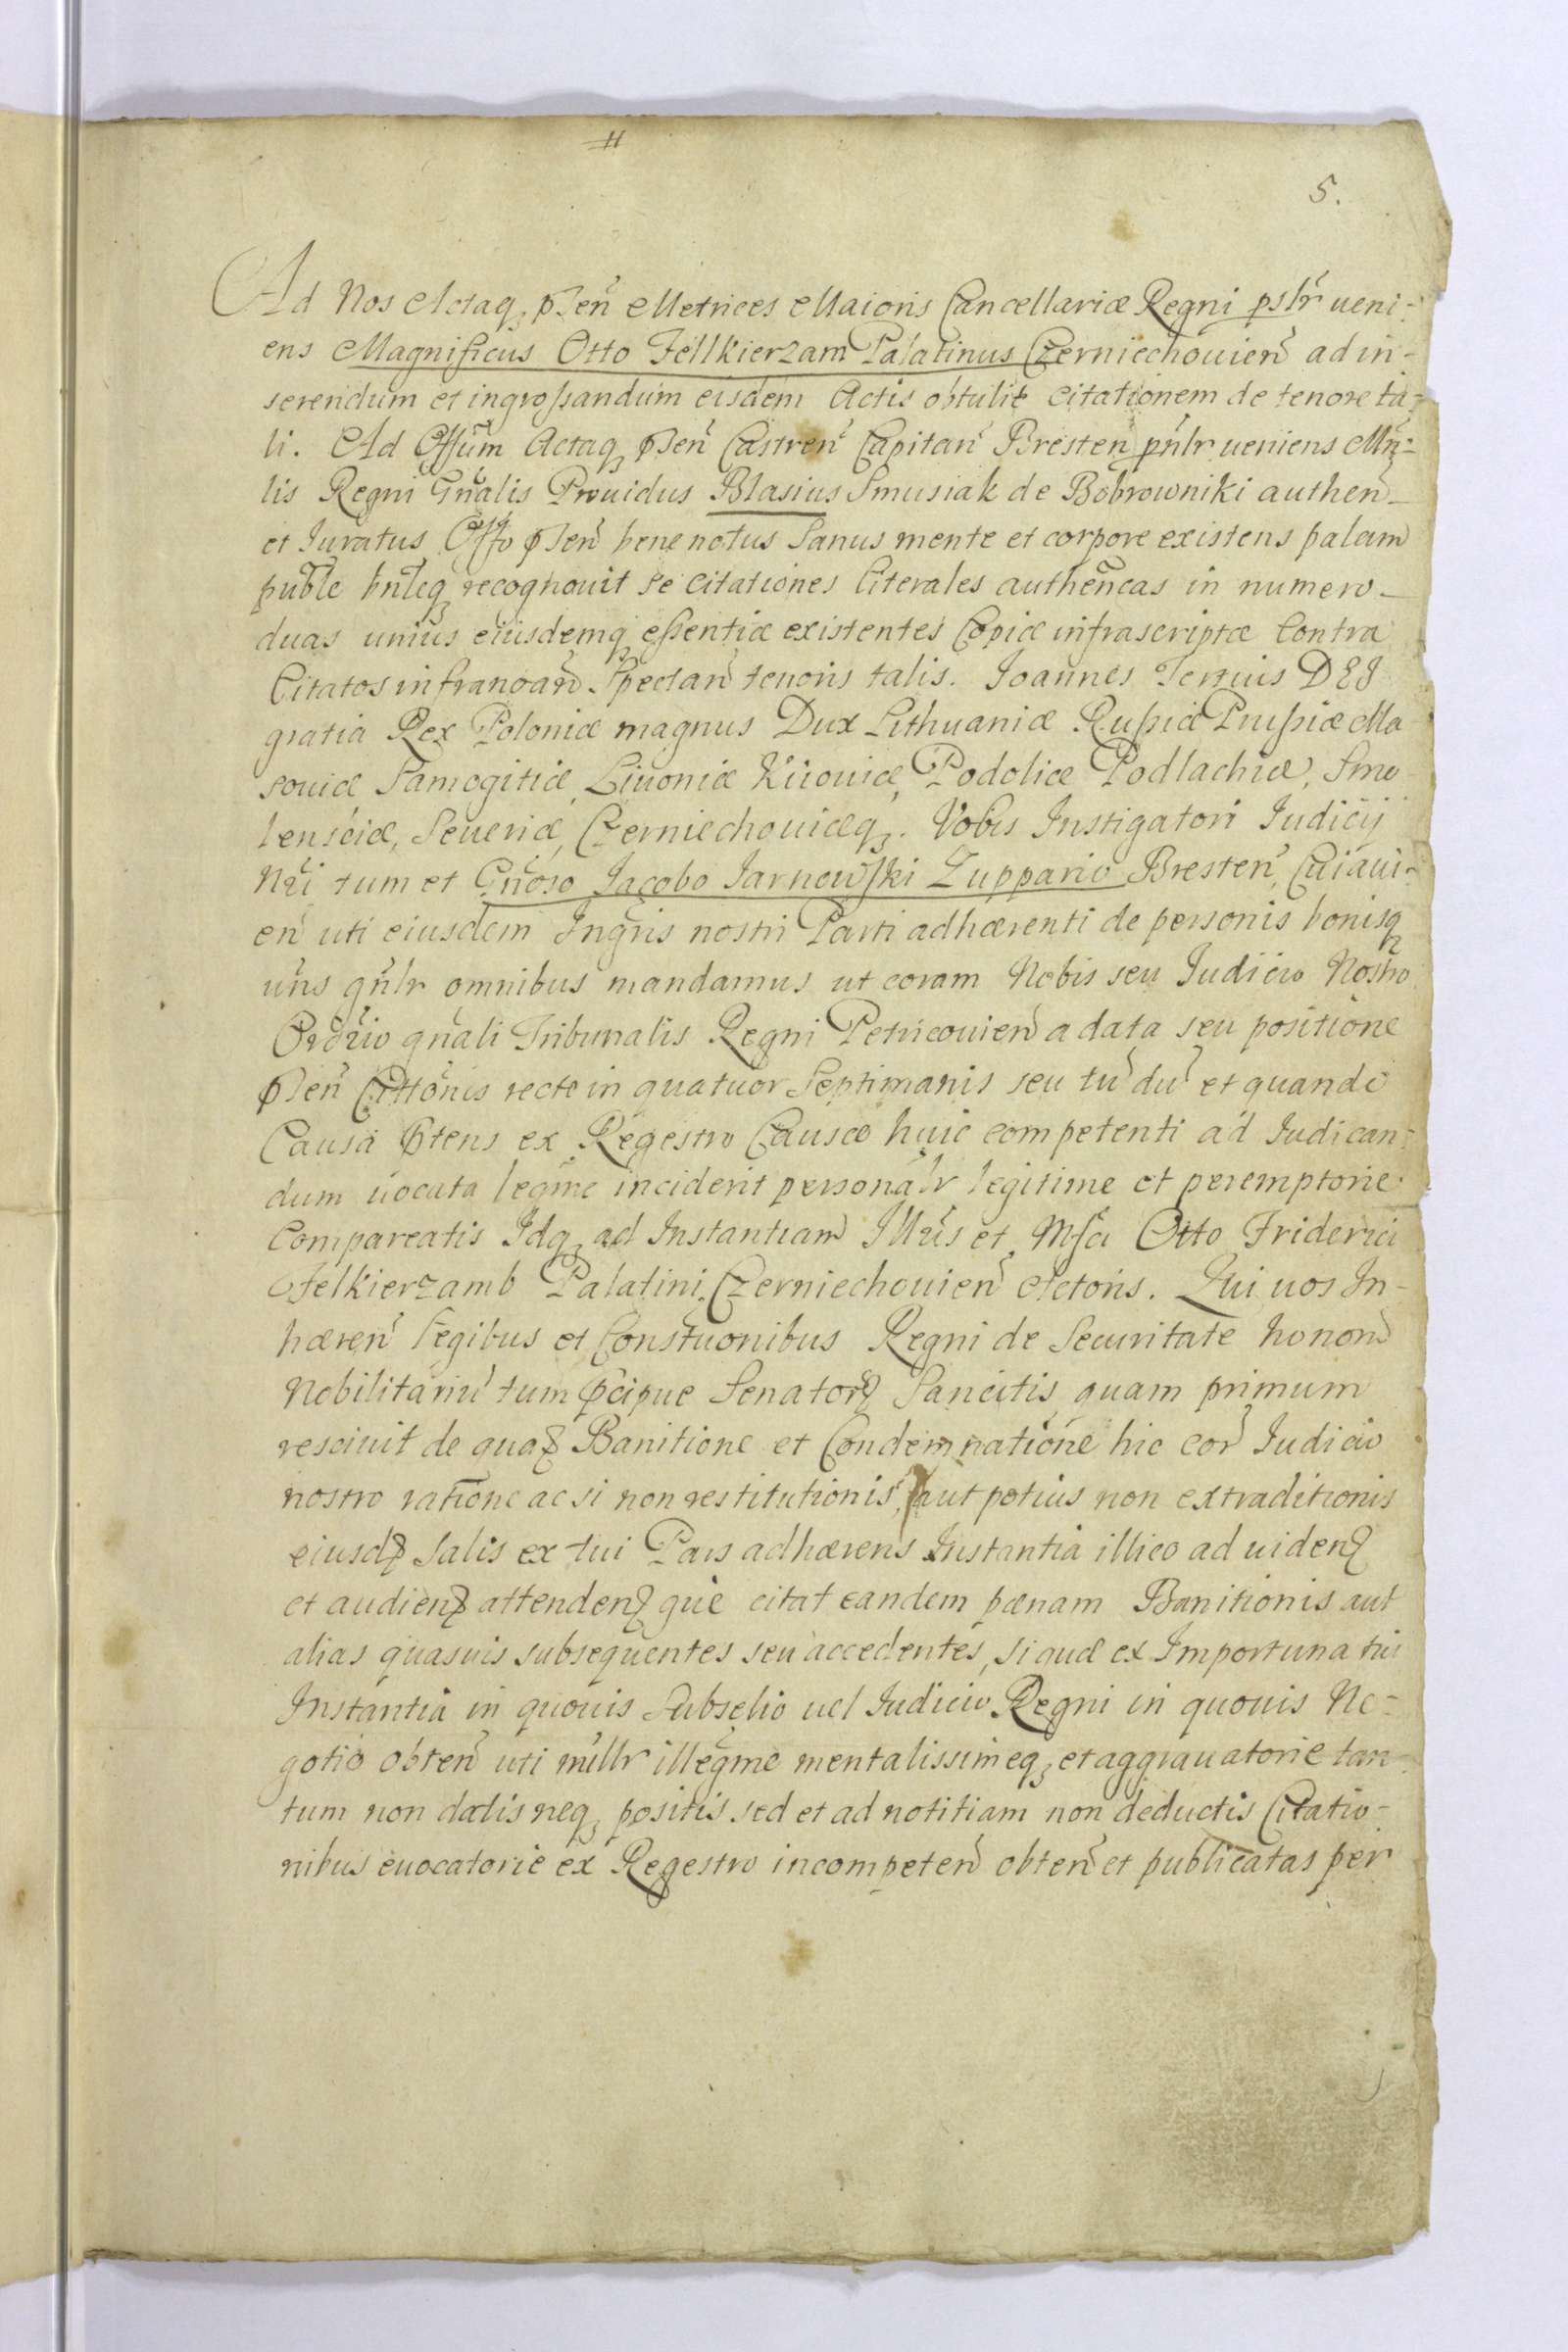 #
5.
Ad Nos Actaq₃ p͞sen͂ Metrices Maioris Cancellariæ Regni pslr ueni-
ens Magnificus Otto Fellkierzam Palatinus Czerniechouien͂ ad in-
serendum et ingrossandum eisdem Actis obtulit citationem de tenore ta-
li. Ad Offum Actaq₃ p͞sen͂ Castren͂ Capitan͂ Bresten͂ pn͂lr ueniens Mn͂-
lis Regni Gn͂alis Prouidus Blasius Smusiak de Bobrowniki authen͂
et Iuratus Offo p͞sen͂ bene notus sanus mente et corpore existens palam
puble bnleq₃ recognouit se citationes literales authen͂cas in numero
duas unius eiusdemq₃ essentiæ existentes Copiæ infrascriptæ Contra
Citatos infranoan͂ Spectan͂ tenoris talis. Joannes Tertius DEJ
gratia Rex Poloniæ magnus Dux Lithuaniæ Russiæ Prussiæ Ma
souiæ Samogitiæ, Liuoniæ Kiiouiæ, Podoliæ Podlachiæ, Smo
lensciæ, Seueriæ, Czerniechouiæq₃. Vobis Instigatori Iudicij
Nr͂i tum et Gn͂oso Jacobo Jarnowski Zuppario Bresten͂ Cuiaui-
en͂ uti eiusdem Ingris nostri Parti adhærenti de personis bonisq₃
urn͂s gn͂lr omnibus mandamus ut coram Nobis seu Iudicio Nostro
Ordrio gn͂ali Tribunalis Regni Petricouien͂ a data seu positione
p͞sen͂ Citt͂onis recte in quatuor Septimanis seu tu͂ du͂ et quando
Causa p͞ntens ex Regestro Causæ huic competenti ad Iudican-
dum uocata legme inciderit personalr legitime et peremptorie
Compareatis Idq₃ ad Instantiam Illr͂is et Mfci Otto Friderici
Felkierzamb Palatini Czerniechouien͂ Actoris. Qui uos In-
hæren͂ Legibus et Constuonibus Regni de Securitate honorū
Nobilitariu͂ tum p͞cipue Senatorꝫ Sancitis quam primum
resciuit de quaꝫ Banitione et Condemnatione hic cor͂ Iudicio
nostro ratione ac si non restitutionis, aut potius non extraditionis
eiusdꝫ Salis ex tui Pars adhærens Instantia illico ad uidenꝫ
et audienꝫ attendenꝫ que citat eandem pœnam Banitionis aut
alias quasuis subsequentes seu accedentes, si quæ ex Importuna tui
Instantia in quouis Subselio uel Iudicio Regni in quouis Ne-
gotio obten͂ uti nullr illegme mentalissimeq₃ et aggrauatorie tan-
tum non datis neq₃ positis sed et ad notitiam non deductis Citatio-
nibus euocatorie ex Regestro incompeten͂ obten͂ et publicatas per